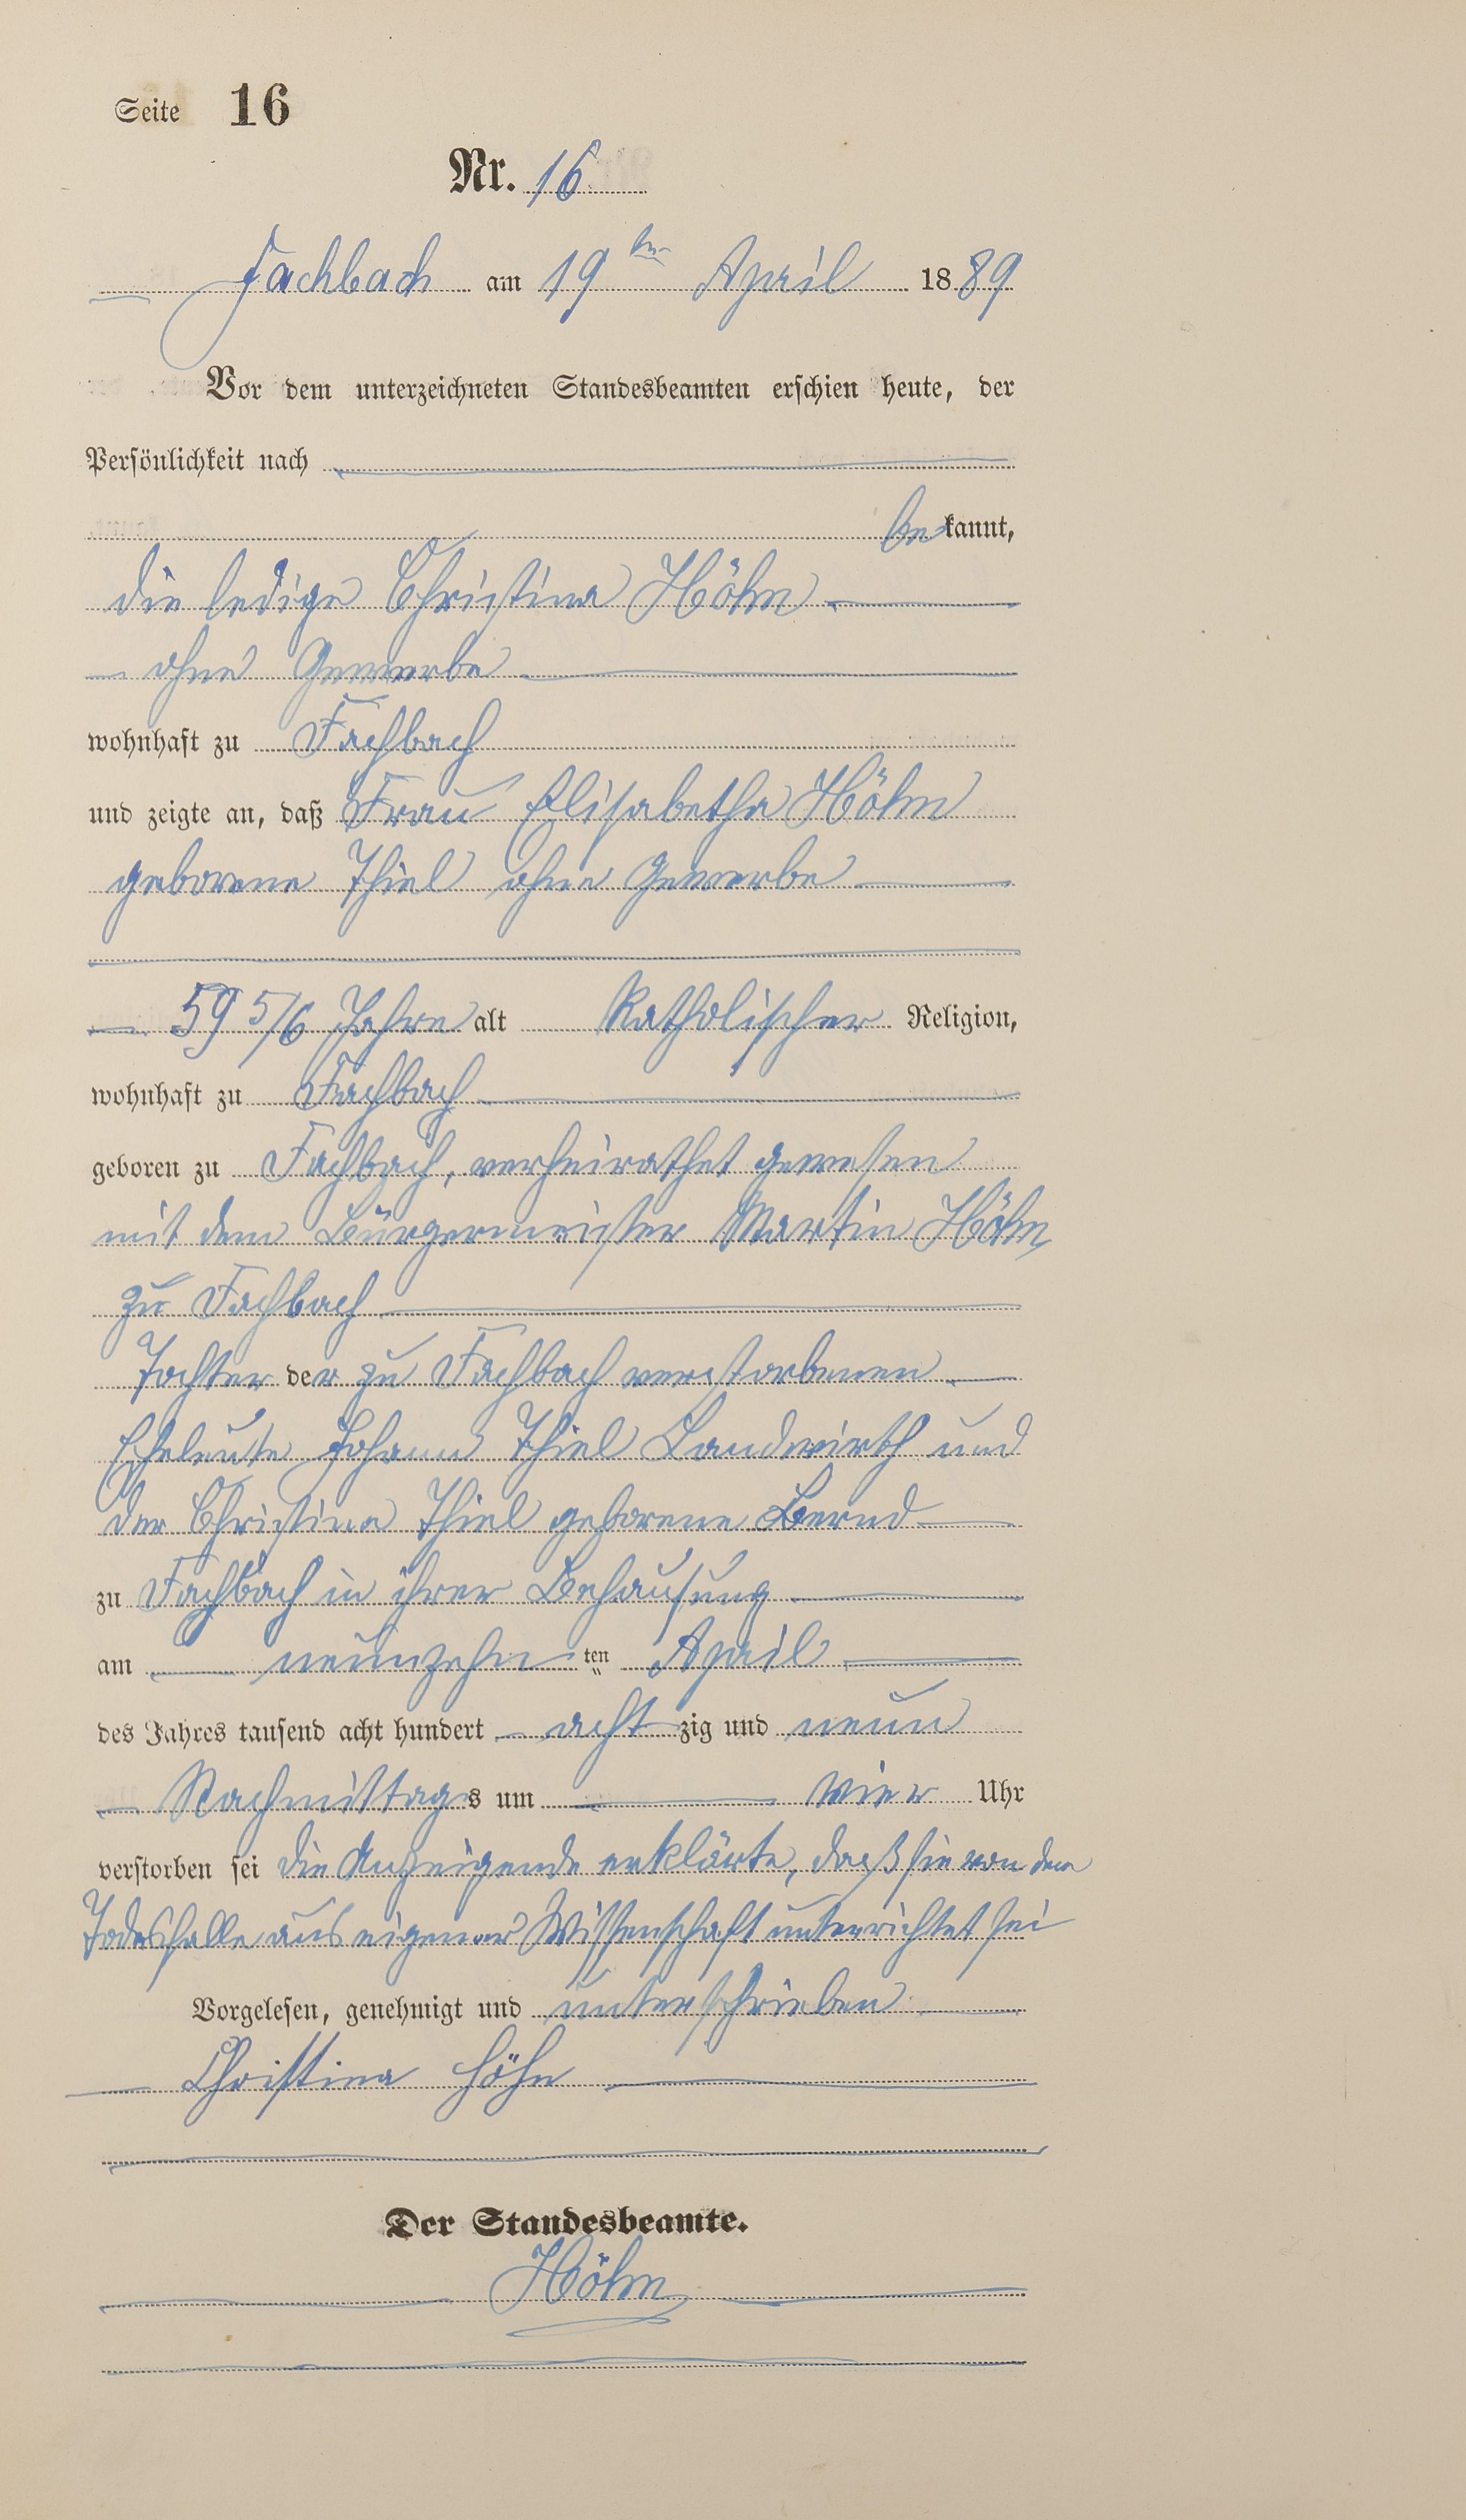 Seite 16
Nr. 16
Fachbach am 19ten April 1889
Vor dem unterzeichneten Standesbeamten erschien heute, der
Persönlichkeit nach
bekannt,
die ledige Christina Höhn
ohne Gewerbe
wohnhaft zu Fachbach
und zeigte an, daß Frau Elisabetha Höhn
geborene Thiel ohne Gewerbe
59 5/6 Jahre alt Katholischer Religion,
wohnhaft zu Fachbach
geboren zu Fachbach, verheirathet gewesen
mit dem Bürgermeister Martin Höhn
zu Fachbach
Tochter der zu Fachbach verstorbenen
Eheleute Johann Thiel Landwirth und
der Christina Thiel geborene Bernd
zu Fachbach in ihrer Behausung
am neunzehn ten April
des Jahres tausend acht hundert achtzig und neun
Nachmittags um vier Uhr
verstorben sei die Anzeigende erklärte, daß sie von dem
Todesfalle aus eigener Wissenschaft unterrichtet sei
Vorgelesen, genehmigt und unterschrieben
Christina Höhn
Der Standesbeamte.
Höhn